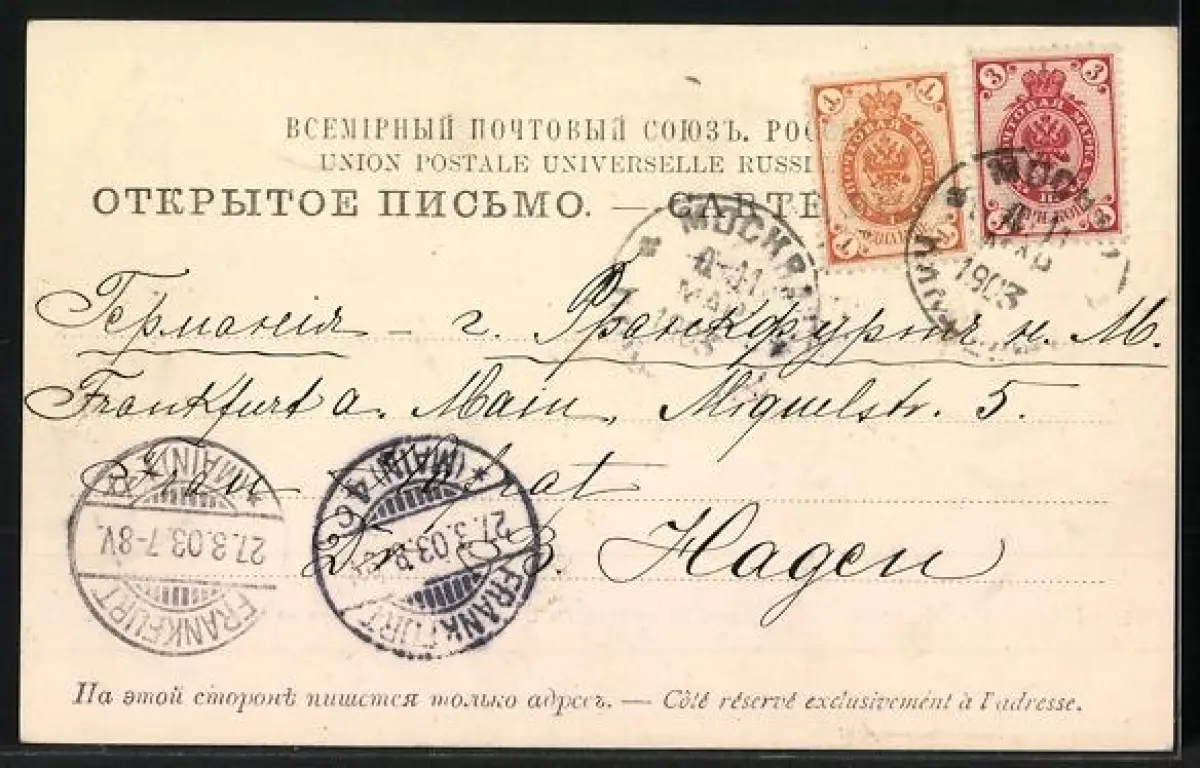 ВСЕМІРНЫЙ ПОЧТОВЫЙ СОЮЗЪ. РОС
UNION POSTALE UNIVERSELLE RUSSI
ОТКРЫТОЕ ПИСЬМО. — CARTE
1 1
ПОЧТОВАЯ МАРКА
1 1
3 3
ПОЧТОВАЯ МАРКА
3
МОСКВА
1903
МОСКВА
1903
Германія - г. Франкфуртъ н. М.
Frankfurt a. Main, Miquelstr. 5.
Frau
Dr. B. Hagen
FRANKFURT (MAIN)
27.3.03.7-8V.
FRANKFURT (MAIN) 4
27.3.03.8
На этой сторонѣ пишется только адресъ. — Côté réservé exclusivement à l'adresse.